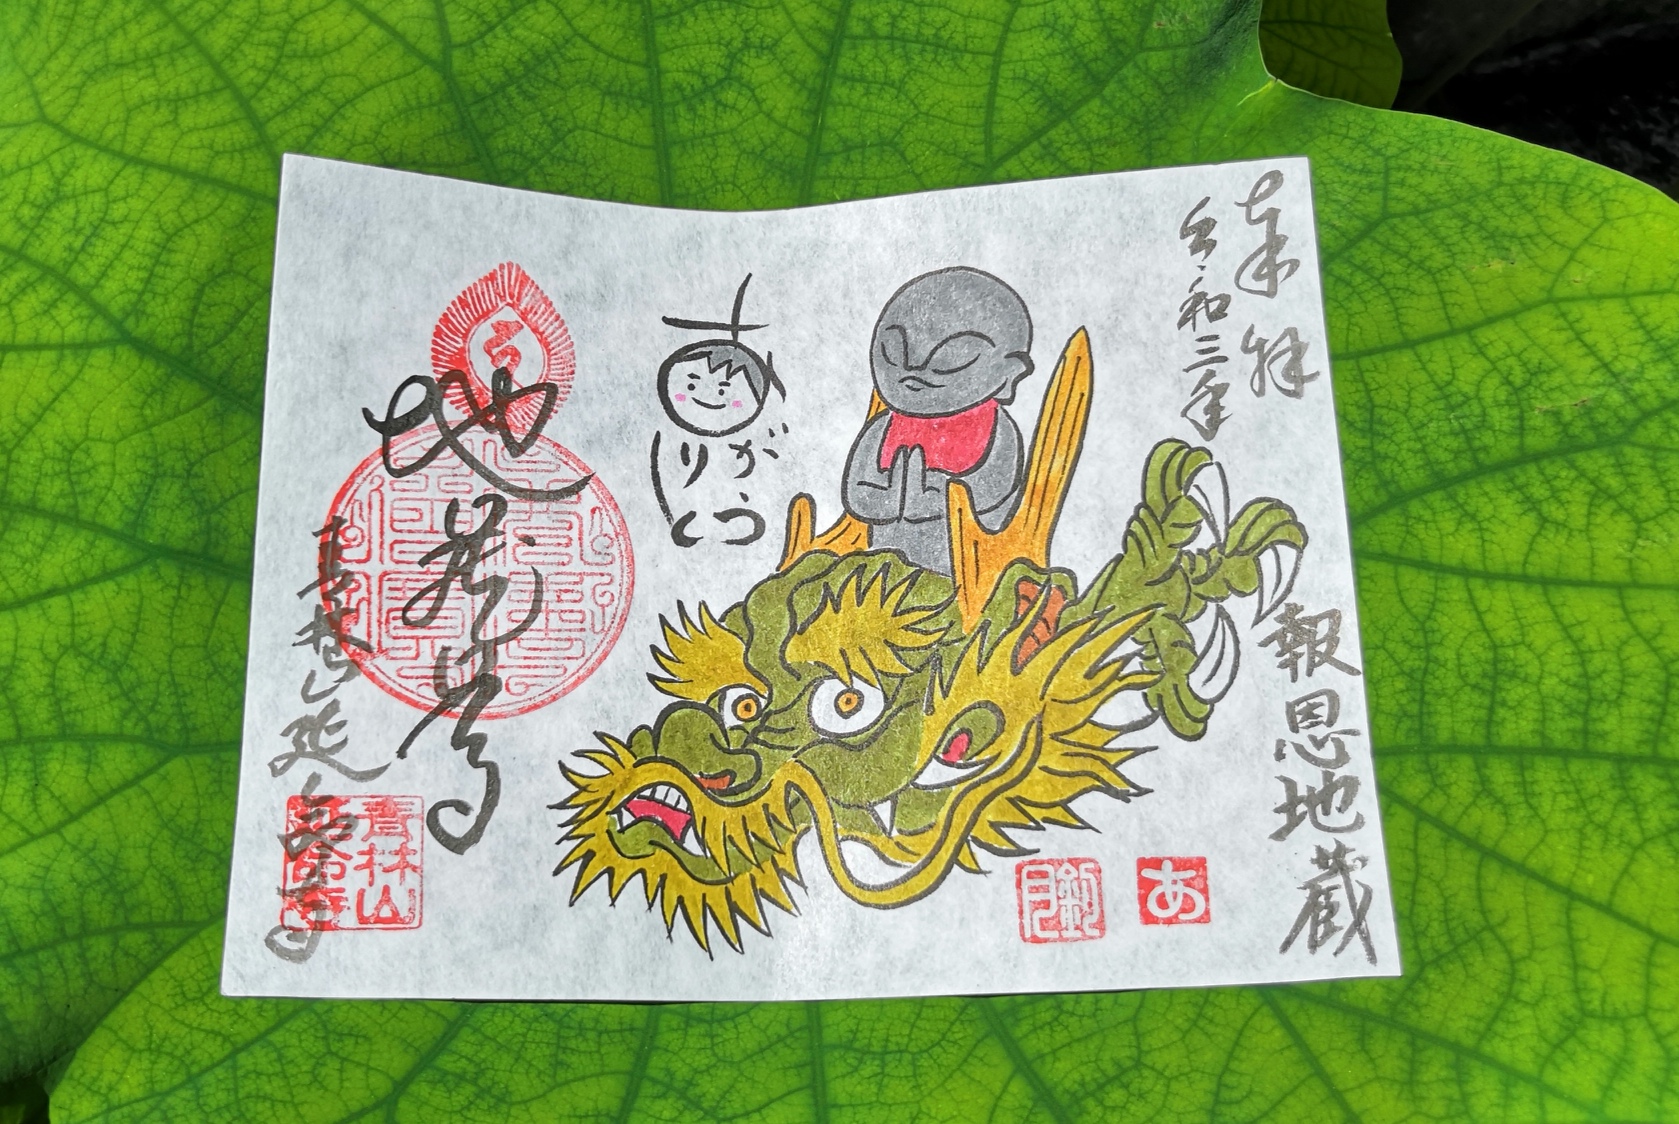 奉拝
令和三年
報恩地蔵
あ
ありがとう
地蔵尊
青林山延命寺
青林山
延命寺